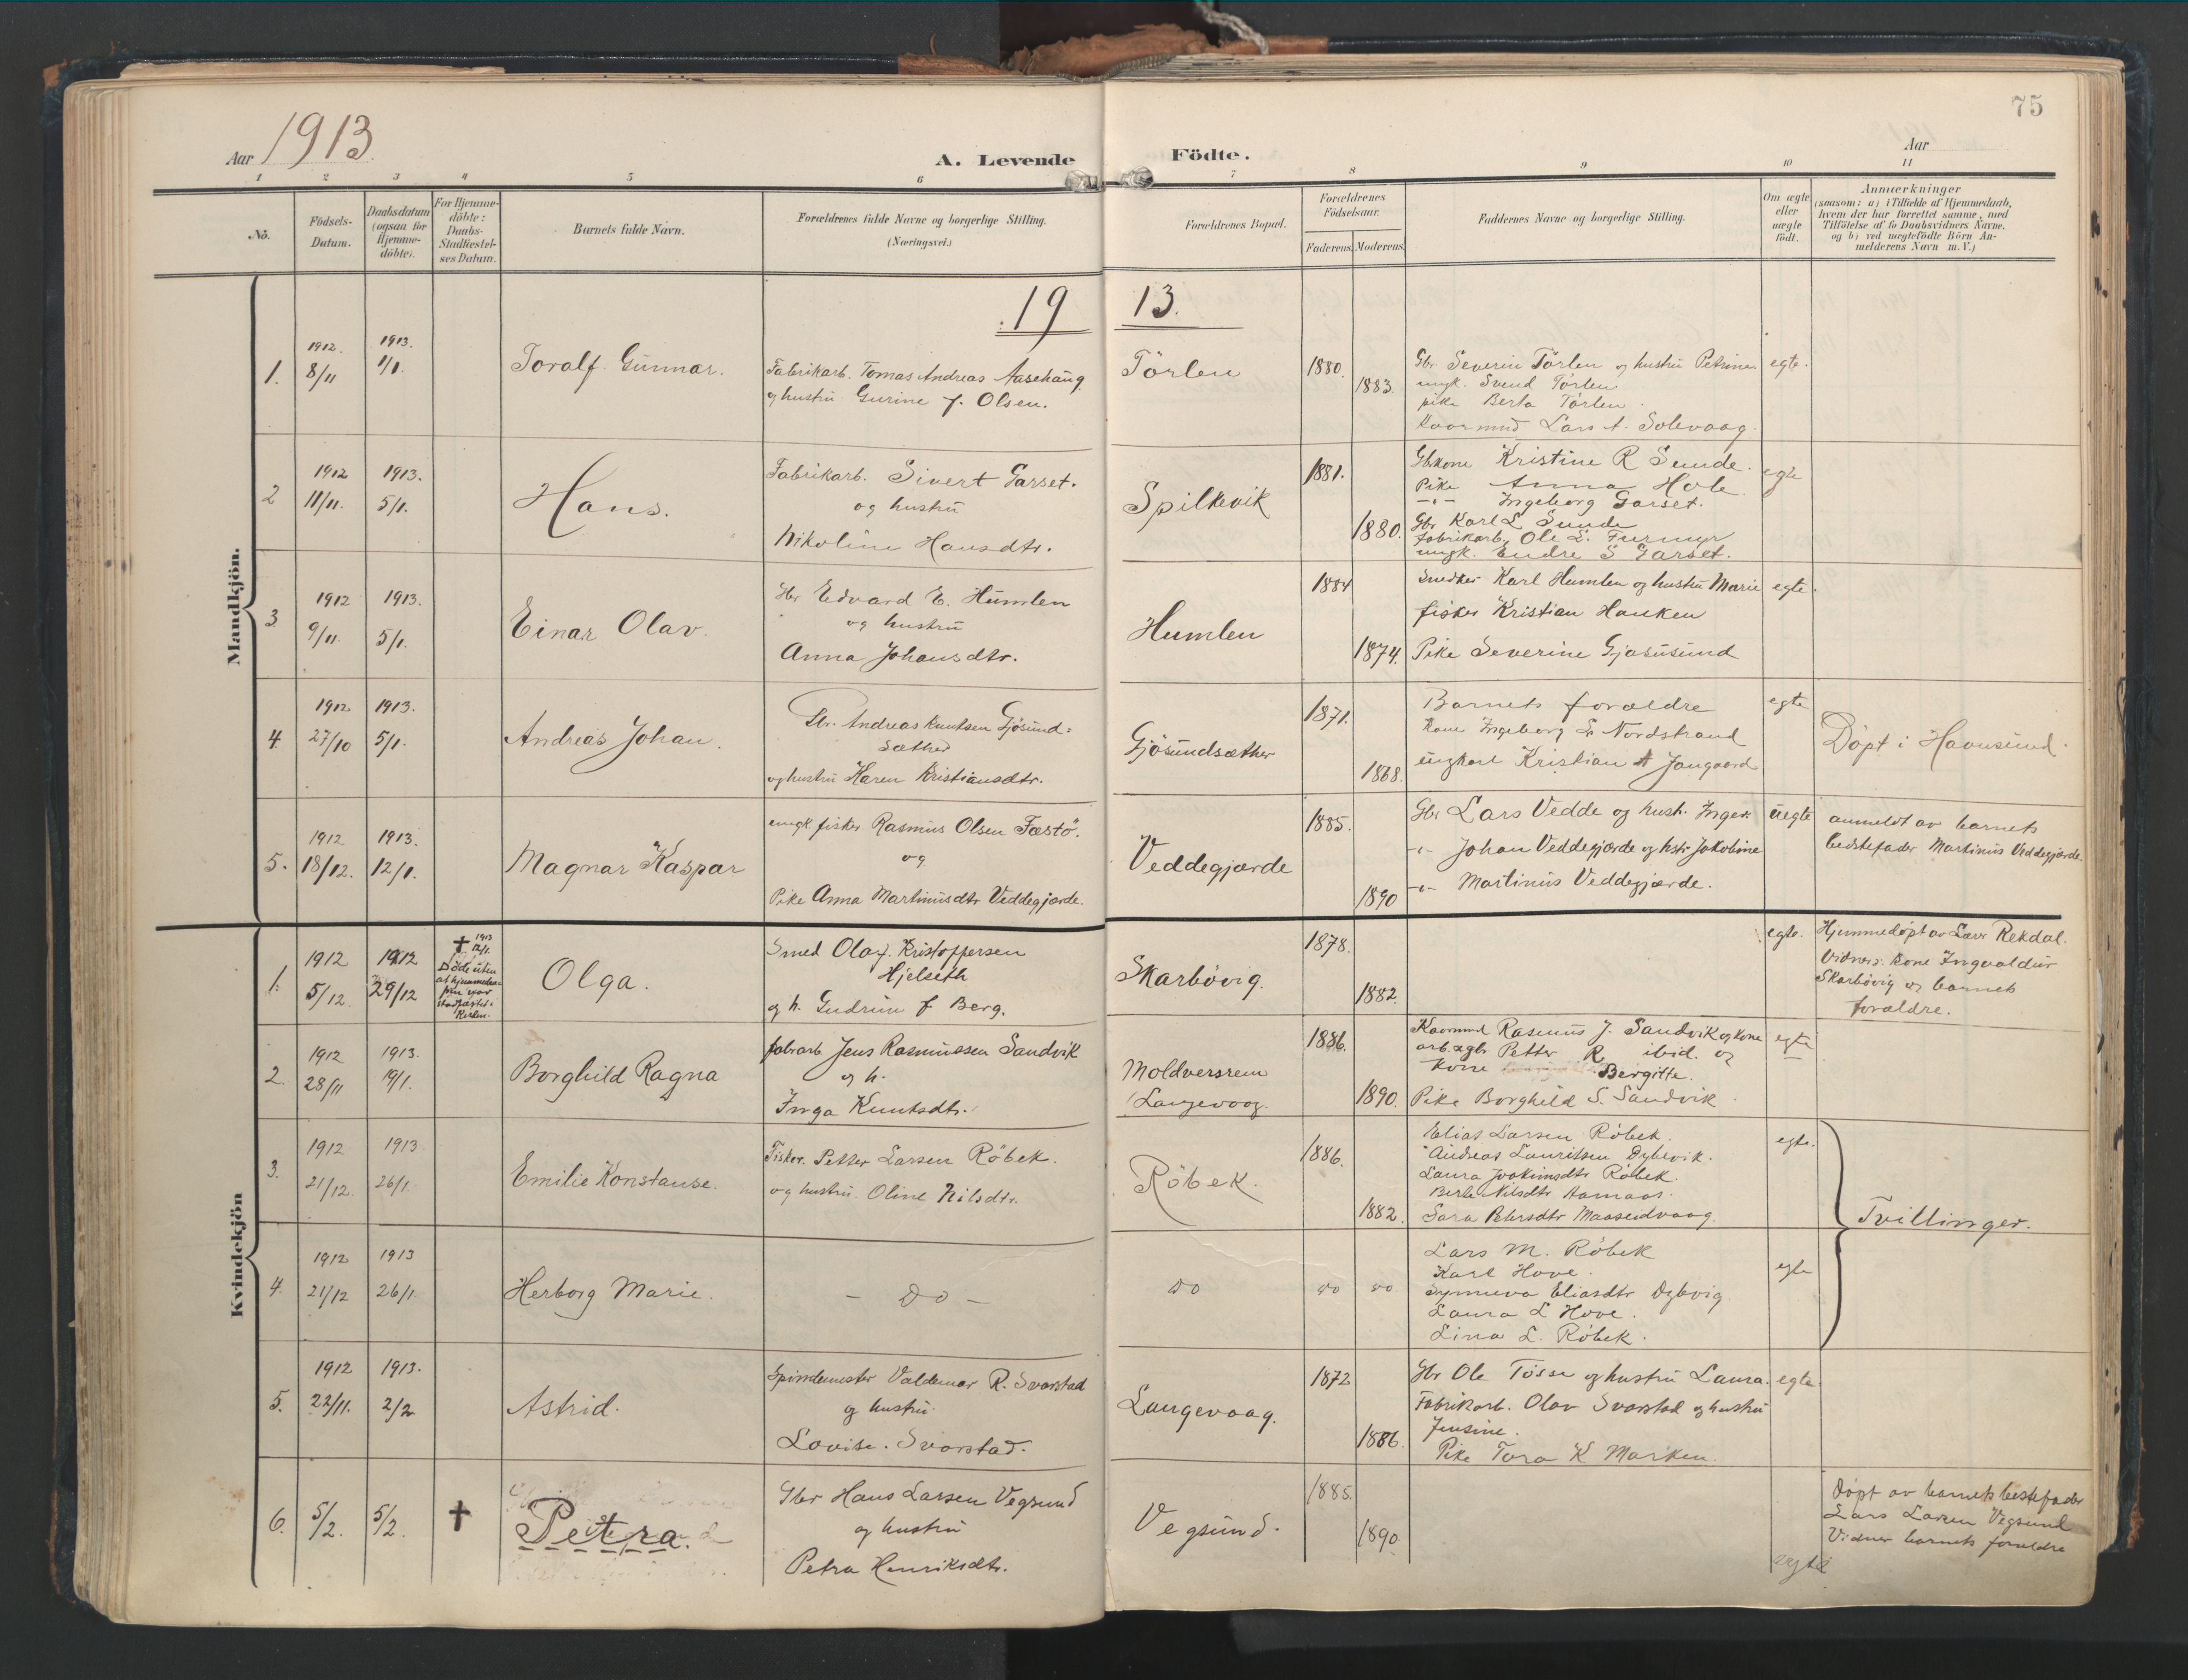 75
Aar 1913.
A. Levende Födte.
Aar
1 2 3 4 5 6 7 8 9 10 11
No.
Födsels-Datum.
Daabsdatum (ogsaa for Hjemme-döbte).
For Hjemme-döbte: Daabs-Stadfæstel-ses Datum.
Barnets fulde Navn.
Forældrenes fulde Navne og borgerlige Stilling.
(Næringsvei.)
Forældrenes Bopæl.
Forældrenes Födselsaar.
Faderens. Moderens.
Faddernes Navne og borgerlige Stilling.
Om ægte eller uægte födt.
Anmærkninger
(saasom: a) i Tilfælde af Hjemmedaab,
hvem der har forrettet samme, med
Tilföielse af to Daabsvidners Navne,
og b) ved uægtefödte Börn An-
melderens Navn m. V.)
19 13.
Mandkjön.
1. 1912. 8/11 1913. 1/1. Toralf Gunnar.
Fabrikarb. Tomas Andreas Aasehaug
og hustru Gurine f. Olsen.
Törlen 1880. 1883.
Gbr Severin Törlen og hustru Petrine
ungk. Svend Törlen
pike Berta Törlen.
Kaarmand Lars A. Solevaag.
egte.
2 1912 11/11. 1913. 5/1. Hans.
Fabrikarb. Sivert Garset.
og hustru
Nikoline Hansdtr.
Spilkevik 1881. 1880.
Gbkone Kristine R Sunde.
Pike Anna Hole
-"- Ingeborg Garset.
Gbr Karl L Sunde
fabrikarb. Ole L. Furmyr
ungk. Endre S Garset.
egte
3. 1912 9/11. 1913. 5/1. Einar Olav.
Gbr Edvard E. Humlen
og hustru
Anna Johansdtr.
Humlen 1884 1874.
Snedker Karl Humlen og hustru Marie
fisker Kristian Hanken
Pike Severine Gjøsusund
egte.
4. 1912 27/10 1913. 5/1. Andreas Johan.
Gbr. Andreas Knutsen Gjösund=
sæther
og hustru Karen Kristiansdtr.
Gjösundsæther 1871. 1868.
Barnets forældre
Kone Ingeborg L Nordstrand
ungkarl Kristian A Jangaard
egte
Döpt i Havnsund.
5. 1912 18/12. 1913. 12/1. Magnar Kaspar
ungk fisker Rasmus Olsen Fæstö.
og
Pike Anna Martinusdtr Veddegjærde.
Veddegjærde 1885. 1890
Gbr Lars Vedde og hust. Inger.
-"- Johan Veddegjærde og hstr Jakobine
-"- Martinus Veddegjærde.
uegte
anmeldt av barnets
bedstefader Martinus Veddegjærde.
Kvindekjön
1. 1912 5/12. 1912 29/12
† 1913 12/1. Döde uten at hjemmedaa-
ben var stadfæstet i Kirken.
Olga.
Smed Olaf. Kristoffersen
Hjelseth
og h. Gudrun f Berg.
Skarbövig. 1878. 1882.
egte.
Hjemmedöpt av Lærer Rekdal.
Vidner: kone Ingvaldur
Skarbövig og barnets
forældre.
2. 1912 28/11 1913. 19/1. Borghild Ragna
fabrarb Jens Rasmussen Sandvik
og h.
Inga Knutsdtr.
Moldversrem
Langevaag. 1886. 1890.
Kaarmand Rasmus J. Sandvik og kone
arb. og gbr Petter R ibid. og
kone Bergitte.
Pike Borghild S. Sandvik
egte
3. 1912 21/12. 1913. 26/1. Emilie Konstanse.
Fisker. Petter Larsen Röbek.
og hustru. Oline Nilsdtr.
Röbek. 1886. 1882.
Elias Larsen Röbek.
Andreas Lauritsen Dybevik.
Laura Joakimsdtr Röbek.
Berte Nilsdtr Aamaas.
Sara Petersdtr Maaseidvaag.
egte.
Tvillinger.
4. 1912 21/12 1913 26/1. Herborg Marie.
- Do -
do do do
Lars M. Röbek
Karl Hove.
Synneva Eliasdtr Dybvig
Laura L Hove.
Lina L. Röbek.
egte
5. 1912 22/11. 1913. 2/2 Astrid.
Spindemester Valdemar R. Svorstad
og hustru.
Lovise. Svorstad.
Langevaag. 1872 1886.
Gbr Ole Tösse og hustru Laura.
Fabrikarb. Olav Svorstad og hustru
Jensine.
Pike Tora K Marken
egte.
6. 5/2. 5/2. † Petra.
Gbr Hans Larsen Vegsund
og hustru
Petra Henriksdtr.
Vegsund. 1885. 1890.
egte
Döpt av barnets bestefader
Lars Larsen Vegsund
Vidner barnets forældre